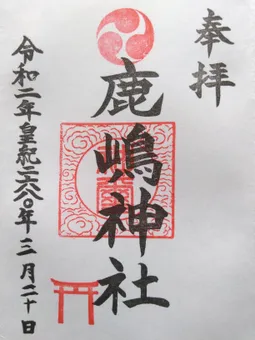 奉拝
鹿嶋神社
令和二年皇紀二六八〇年三月二十日